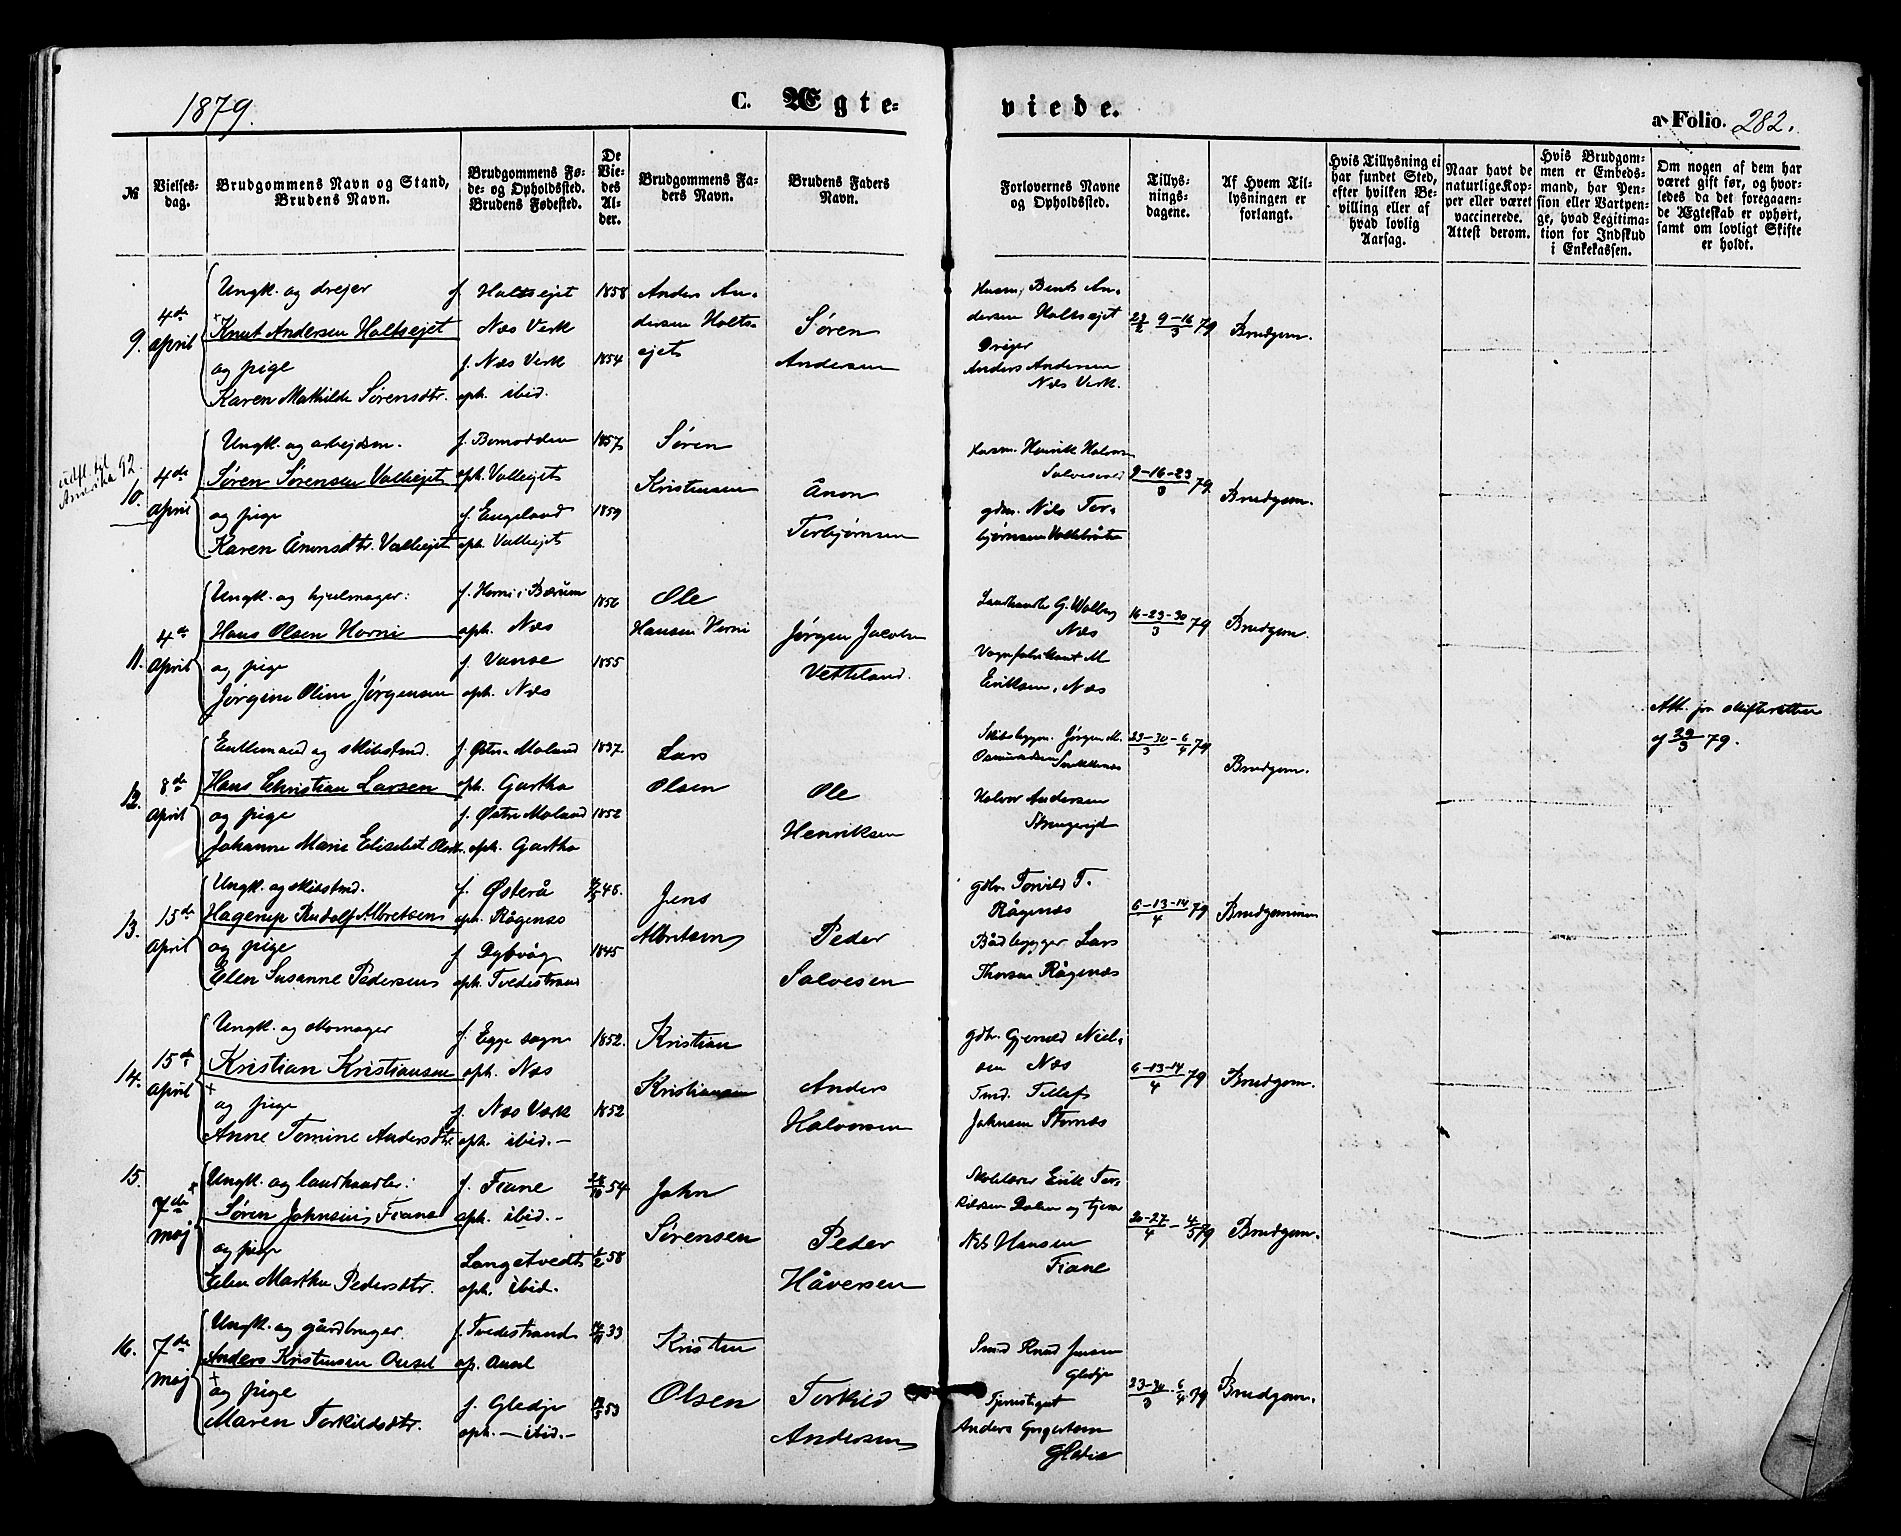 1879.
C. Ægte-
viede.
a Folio. 282.
№
Vielses-
dag.
Brudgommens Navn og Stand,
Brudens Navn.
Brudgommens Fø-
de- og Opholdssted.
Brudens Fødested.
De
Vie-
des
Al-
der.
Brudgommens Fa-
ders Navn.
Brudens Faders
Navn.
Forlovernes Navne
og Opholdssted.
Tillys-
nings-
dagene.
Af Hvem Til-
lysningen er
forlangt.
Hvis Tillysning ei
har fundet Sted,
efter hvilken Be-
villing eller af
hvad lovlig
Aarsag.
Naar havt de
naturlige Kop-
per eller været
vaccinerede.
Attest derom.
Hvis Brudgom-
men er Embeds-
mand, har Pen-
sion eller Vartpen-
ge, hvad Legitima-
tion for Indskud
i Enkekassen.
Om nogen af dem har
været gift før, og hvor-
ledes da det foregaaen-
de Ægteskab er ophørt,
samt om lovligt Skifte
er holdt.
9.
4de
April
Ungk. og drejer
Knut Andersen Holtsejet
og pige
Karen Mathilde Sørensdtr.
f. Holtsejet
Næs Verk
f. Næs Verk
oph. ibid.
1858
1854
Anders An-
dersen Holts-
ejet
Søren
Andersen
Husm. Bent An-
dersen Holtsejet
Drejer
Anders Andersen
Næs Verk.
23/2 9-16/3 79
Brudgom.
udfl. til
Amerika 92.
10.
4de
April
Ungk. og arbejdsm.
Søren Sørensen Valleejet
og pige
Karen Ånonsdtr. Valleejet
f. Bomodden
oph. Valleejet
f. Engeland
oph. Valleejet
1857
1859
Søren
Kristensen
Ånon
Terbjørnsen
Husm. Henrik Halvors
gdm. Nils Ter-
bjørnsen
9-16-23/3 79
Brudgom.
11.
4de
April
Ungk. og hjulmager:
Hans Olsen Horni
og pige
Jørgine Oline Jørgensen
f. Horni i Bærum
oph. Næs
f. Vanse
oph. Næs
1856
1855
Ole
Hansen Horni
Jørgen Jacobsen
Vetteland.
Landhandler G. Wolberg
Næs
Vognfabrikant M
Eriksen, Næs
16-23-30/3 79
Brudgom.
12.
8de
April
Enkemand og skibstmd.
Hans Christian Larsen
og pige
Johanne Marie Elisabet Olsdtr.
f. Østre Moland
oph. Gartha
f. Østre Moland
oph. Gartha
1837
1852
Lars
Olsen
Ole
Henriksen
Skibsbygm. Jørgen M.
Halvor Andersen
23-30/3 - 6/4 79
Brudgom.
Att. fra skifteretten
af 29/3 79.
13.
15de
April
Ungk. og skibstmd.
Hagerup Rudolf Albretsen
og pige
Elen Susanne Pedersen
f. Østerå
oph. Rågenæs
f. Dybvåg
oph. Tvedestrand
46.
1845
Jens
Albretsen
Peder
Salvesen
gdbr. Torvild T.
Rågenæs
Bådbygger Lars
Thorsen Rågenæs
6-13-14/4 79
Brudgommen
14.
15de
April
Ungk. og skomager
Kristian Kristiansen
og pige
Anne Tomine Andersdtr.
f. Egge sogn
oph. Næs
f. Næs Værk
oph. ibid.-
1852.
1852
Kristian
Kristiansen
Anders
Halvorsen
gdbr. Gjeruld Niel-
sen Næs
Tmd. Tellef
Johnsen Stornæs
6-13-14/4 79
Brudgom.
15.
7de
Maj
Ungk. og landhandler:
Søren Johnsen Fiane
og pige
Elen Marthe Pedersdtr.
f. Fiane
oph. ibid.-
Langstvedt
oph. ibid.
54
58
John
Sørensen
Peder
Håversen
Skolelærer Erik Ter-
kildsen Dalen og
Nils Hansen
Fiane
20-27/4 - 4/5 79
Brudgom.
16.
7de
Maj
Ungk. og gårdbruger.
Anders Kristensen Ousel
og pige
Maren Torkildsdtr.
f. Tvedestrand
op. Ousel
f. Gledje
oph. - ibid.-
33
53
Kristen
Olsen
Torkild
Andersen
Smed Knud Jensen
Gledje
Anders
Gledje
23-30/3 - 6/4 79
Brudgom.